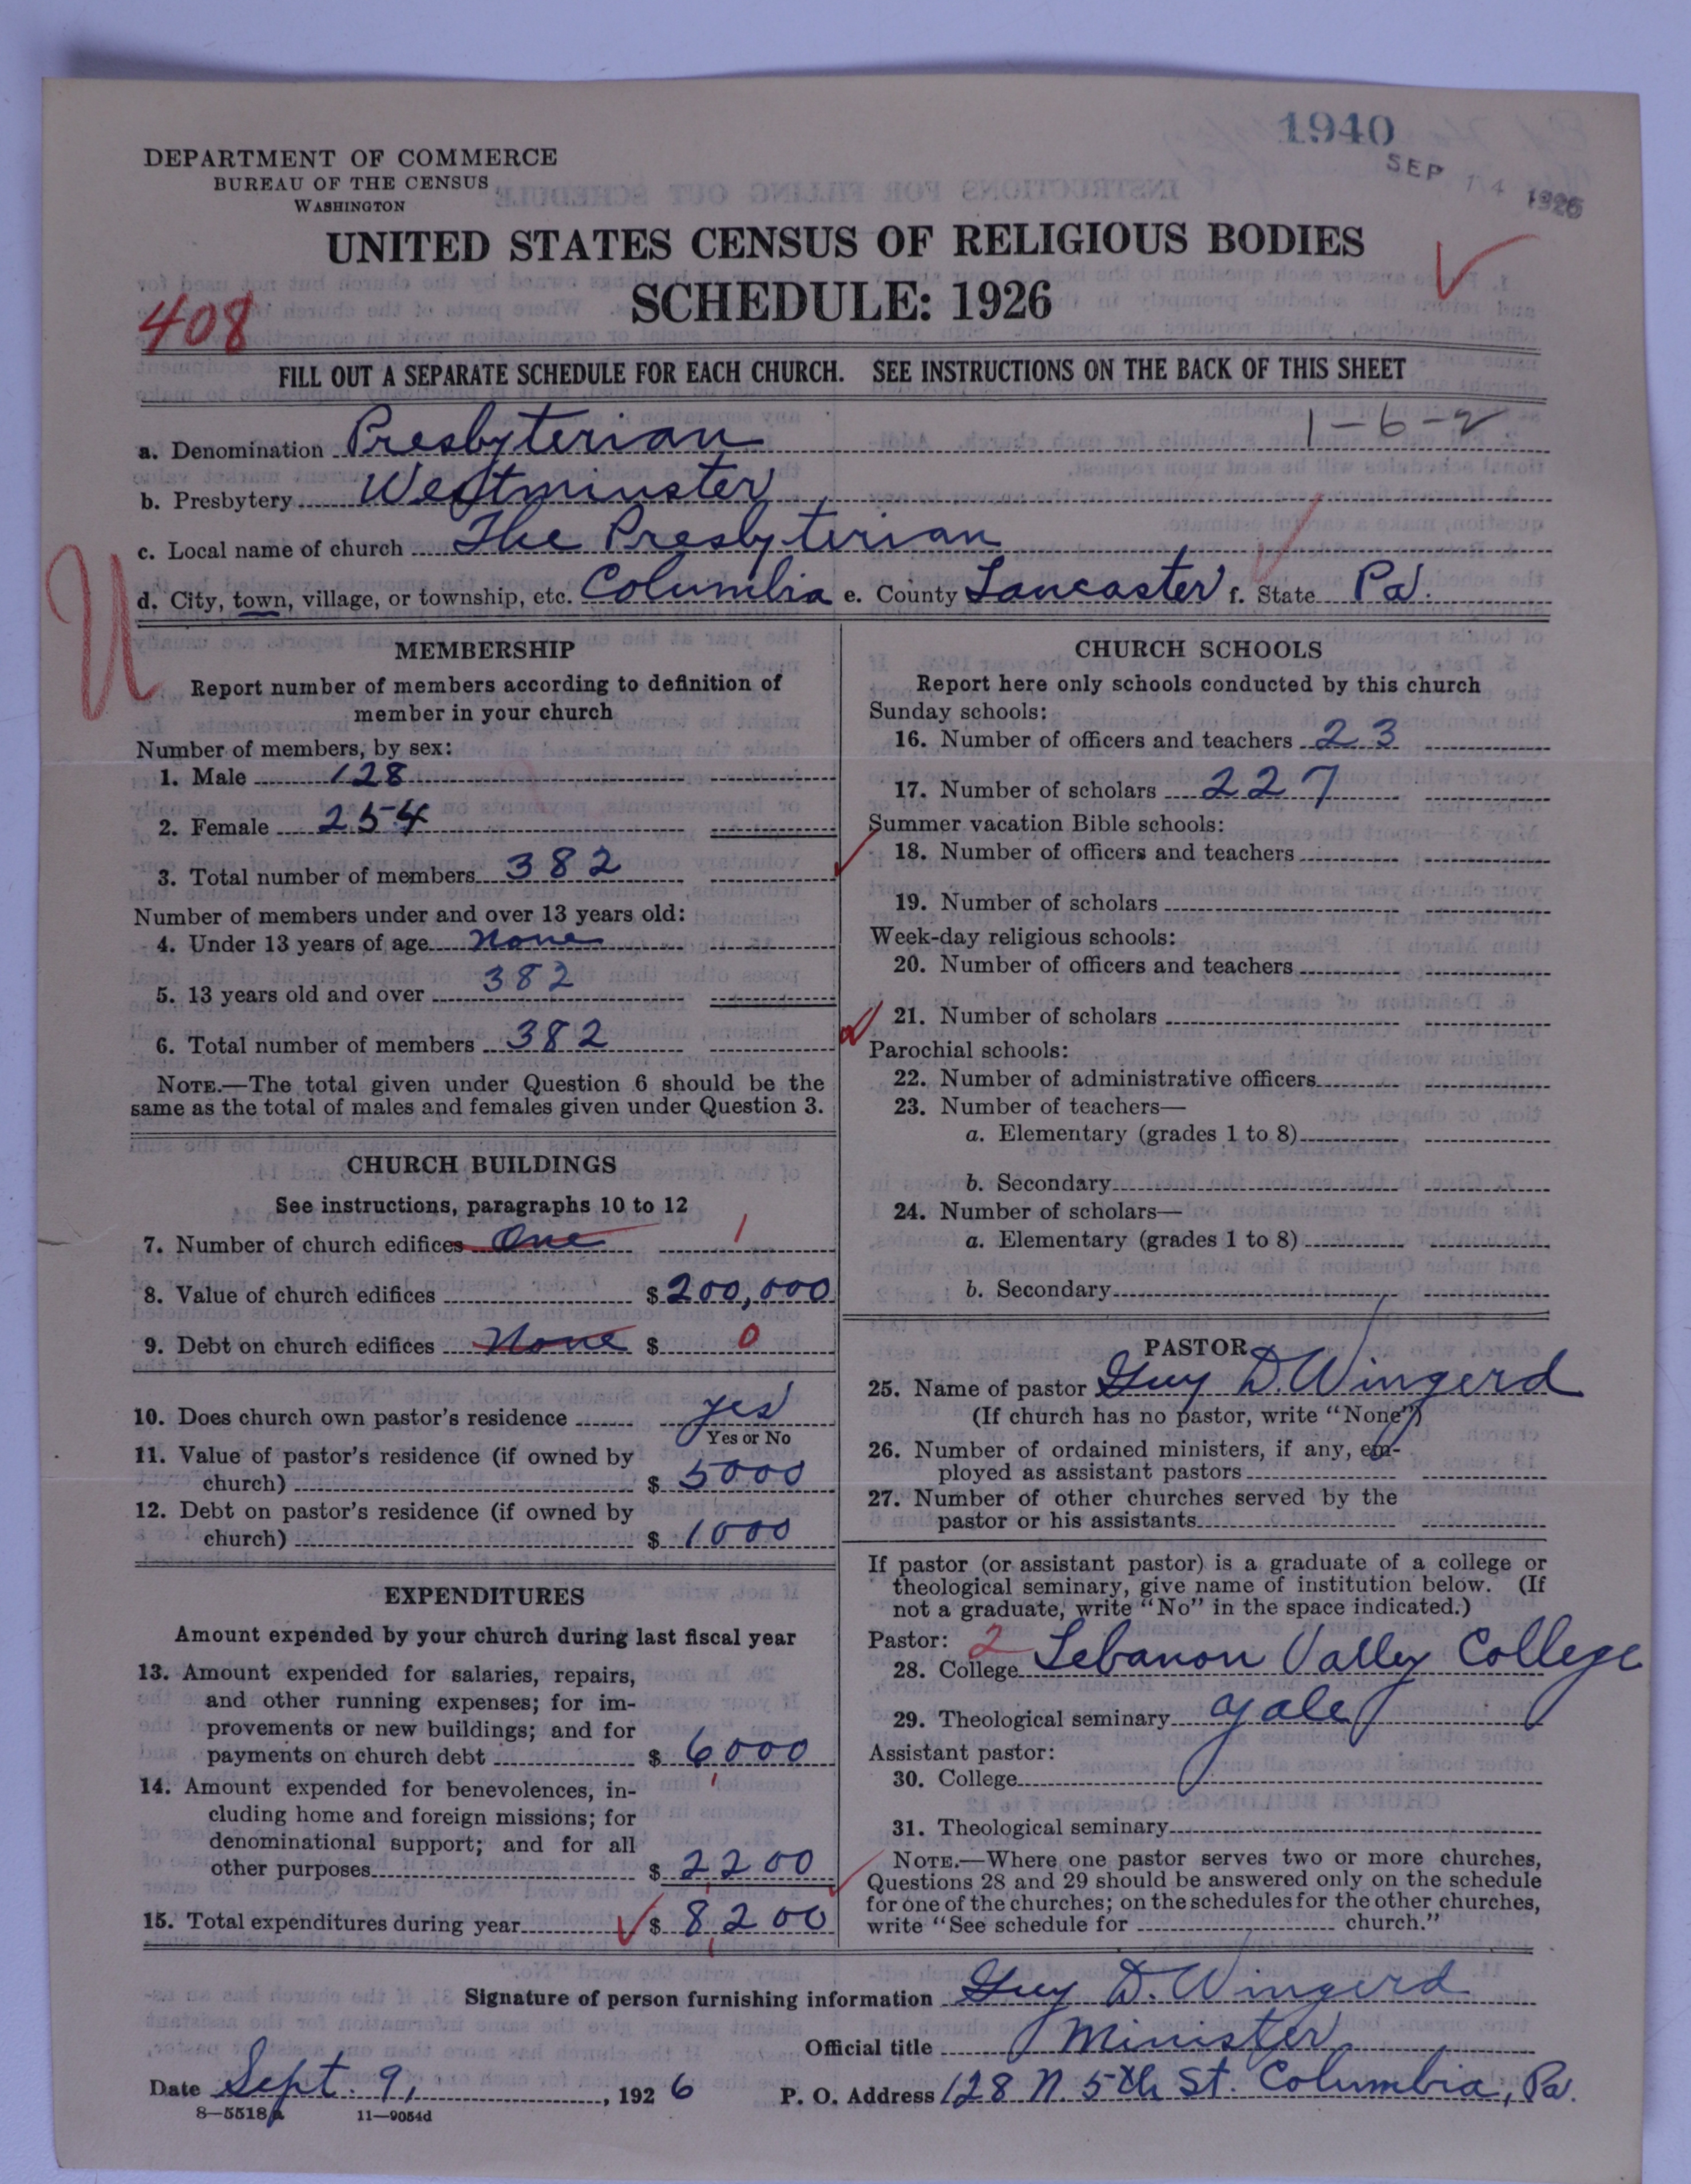 1940
SEP 14 1926
DEPARTMENT OF COMMERCE
BUREAU OF THE CENSUS
WASHINGTON
UNITED STATES CENSUS OF RELIGIOUS BODIES
SCHEDULE: 1926
408
FILL OUT A SEPARATE SCHEDULE FOR EACH CHURCH. SEE INSTRUCTIONS ON THE BACK OF THIS SHEET
1-6-2
a. Denomination Presbyterian
b. Presbytery Westminster
c. Local name of church The Presbyterian
d. City, town, village, or township, etc. Columbia e. County Lancaster f. State Pa.
U
MEMBERSHIP
Report number of members according to definition of
member in your church
Number of members, by sex:
1. Male 128
2. Female 254
3. Total number of members 382
Number of members under and over 13 years old:
4. Under 13 years of age None
5. 13 years old and over 382
6. Total number of members 382
NOTE.—The total given under Question 6 should be the
same as the total of males and females given under Question 3.
CHURCH BUILDINGS
See instructions, paragraphs 10 to 12
7. Number of church edifices One 1
8. Value of church edifices $ 200,000
9. Debt on church edifices None $ 0
10. Does church own pastor's residence yes
Yes or No
11. Value of pastor's residence (if owned by
church) $ 5000
12. Debt on pastor's residence (if owned by
church) $ 1000
EXPENDITURES
Amount expended by your church during last fiscal year
13. Amount expended for salaries, repairs,
and other running expenses; for im-
provements or new buildings; and for
payments on church debt $ 6000
14. Amount expended for benevolences, in-
cluding home and foreign missions; for
denominational support; and for all
other purposes $ 2200
15. Total expenditures during year $ 8,200
CHURCH SCHOOLS
Report here only schools conducted by this church
Sunday schools:
16. Number of officers and teachers 23
17. Number of scholars 227
Summer vacation Bible schools:
18. Number of officers and teachers
19. Number of scholars
Week-day religious schools:
20. Number of officers and teachers
21. Number of scholars
Parochial schools:
22. Number of administrative officers
23. Number of teachers—
a. Elementary (grades 1 to 8)
b. Secondary
24. Number of scholars—
a. Elementary (grades 1 to 8)
b. Secondary
PASTOR
25. Name of pastor Guy D. Wingerd
(If church has no pastor, write "None")
26. Number of ordained ministers, if any, em-
ployed as assistant pastors
27. Number of other churches served by the
pastor or his assistants
If pastor (or assistant pastor) is a graduate of a college or
theological seminary, give name of institution below. (If
not a graduate, write "No" in the space indicated.)
Pastor: 2
28. College Lebanon Valley College
29. Theological seminary Yale
Assistant pastor:
30. College
31. Theological seminary
NOTE.—Where one pastor serves two or more churches,
Questions 28 and 29 should be answered only on the schedule
for one of the churches; on the schedules for the other churches,
write "See schedule for church."
Signature of person furnishing information Guy D. Wingerd
Official title Minister
Date Sept. 9, 1926 P. O. Address 128 N. 5th St. Columbia, Pa.
8—5518a 11—9054d